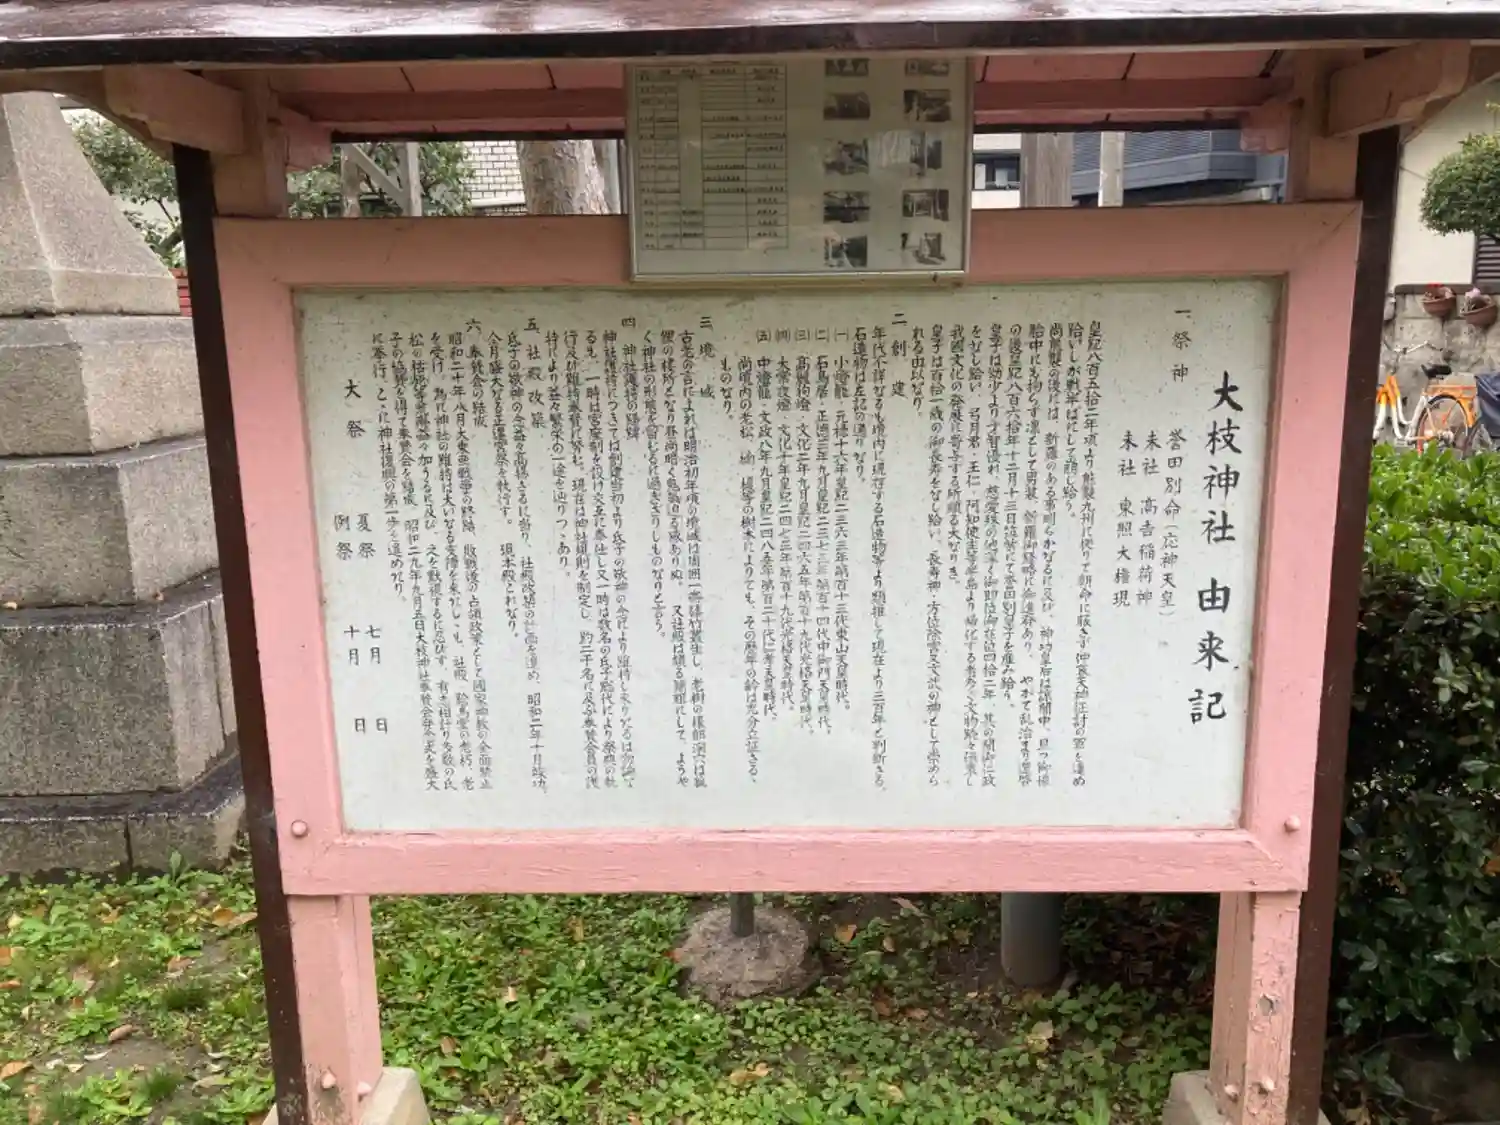 大枝神社 由来記
一、祭神
誉田別命(応神天皇)
末社 高倉稲荷神
末社 東照大権現
皇紀八百五拾二年頃より熊襲九州に拠りて朝命に服さず仲哀天皇征討の軍を進め
給いしが戦半ばにして崩じ給う。
尚熊襲の後には、新羅のある事明らかなるに及び、神功皇后は
胎中にも拘らず凛として男装、新羅御
の後皇紀八百六拾年十二月十三日筑紫にて誉田別皇子を産み給う。
皇子は幼少より才智優れ、慈愛殊の他深く御即位御在位四拾二年、其の間御仁政
をなし給い、弓月君・王仁・阿知使主等半島より帰化する者多く文物続々
我國文化の発展に寄与する所頗る大なりき。
皇子は百拾一歳の御長寿をなし給い、長寿神・方位除災文武の神として崇めら
れる由以なり。
二、創建
年代不詳なるも境内に現存する石造物等より類推して現在より三百年と判断さる。
石造物は左記の通りなり。
㈠ 小燈籠・元禄十六年皇紀二三六三年第百十三代東山天皇時代。
㈡ 石鳥居・正徳三年九月皇紀二三七三年第百十四代中御門天皇時代。
㈢ 高麗狗燈・文化二年九月皇紀二四六五年第百十九代光格天皇時代。
㈣ 太常夜燈・文化十年皇紀二四七三年第百十九代光格天皇時代。
㈤ 中燈籠・文政八年九月皇紀二四八五年第百二十代仁孝天皇時代。
尚境内の老松、楠、樟等の樹木によりても、その歴年の齢は充分立証さる、
ものなり。
三、境域
古老の言によれば明治初年頃の境域は周囲一帯雑竹叢生し、老樹の根部深穴は狐
狸の棲所となり昼尚暗く鬼気迫る感ありぬ。又社殿は頗る矮粗にして、ようや
く神社の形態を留むるに過ぎざりしものなりと言う。
四、神社護持の経緯
神社護持につきては創建当初より氏子の敬神の念により維持し来りたるは勿論な
るも、一時は宮座制を設け交互に奉仕し又一時は数名の氏子総代により祭典の執
行及び維持奉賛に努む。現在は神社規則を制定し、約二千名に及ぶ奉賛会員の護
持により益々繁栄の一途を辿りつゝあり。
五、社殿改築
氏子の敬神の念益々高揚さるに当り、社殿改築の計画を進め、昭和二年十月竣功。
今月盛大なる正遷宮祭を執行す。現本殿これなり。
六、奉賛会の結成
昭和二十年八月大東亜戦争の終結、敗戦後の占領政策として國家神教の全面禁止
を受け、為に神社の維持は大いなる支障を来たしゝも、社殿、絵馬堂の老朽、老
松の枯死等悪条件加わるに及び、之を黙視するに忍びず、有志相計り多数の氏
子の協賛を得て奉賛会を結成、昭和二九年九月五日大枝神社奉賛会発会式を盛大
に挙行、こゝに神社復興の第一歩を進めたり。
大祭
夏祭 七月 日
例祭 十月 日